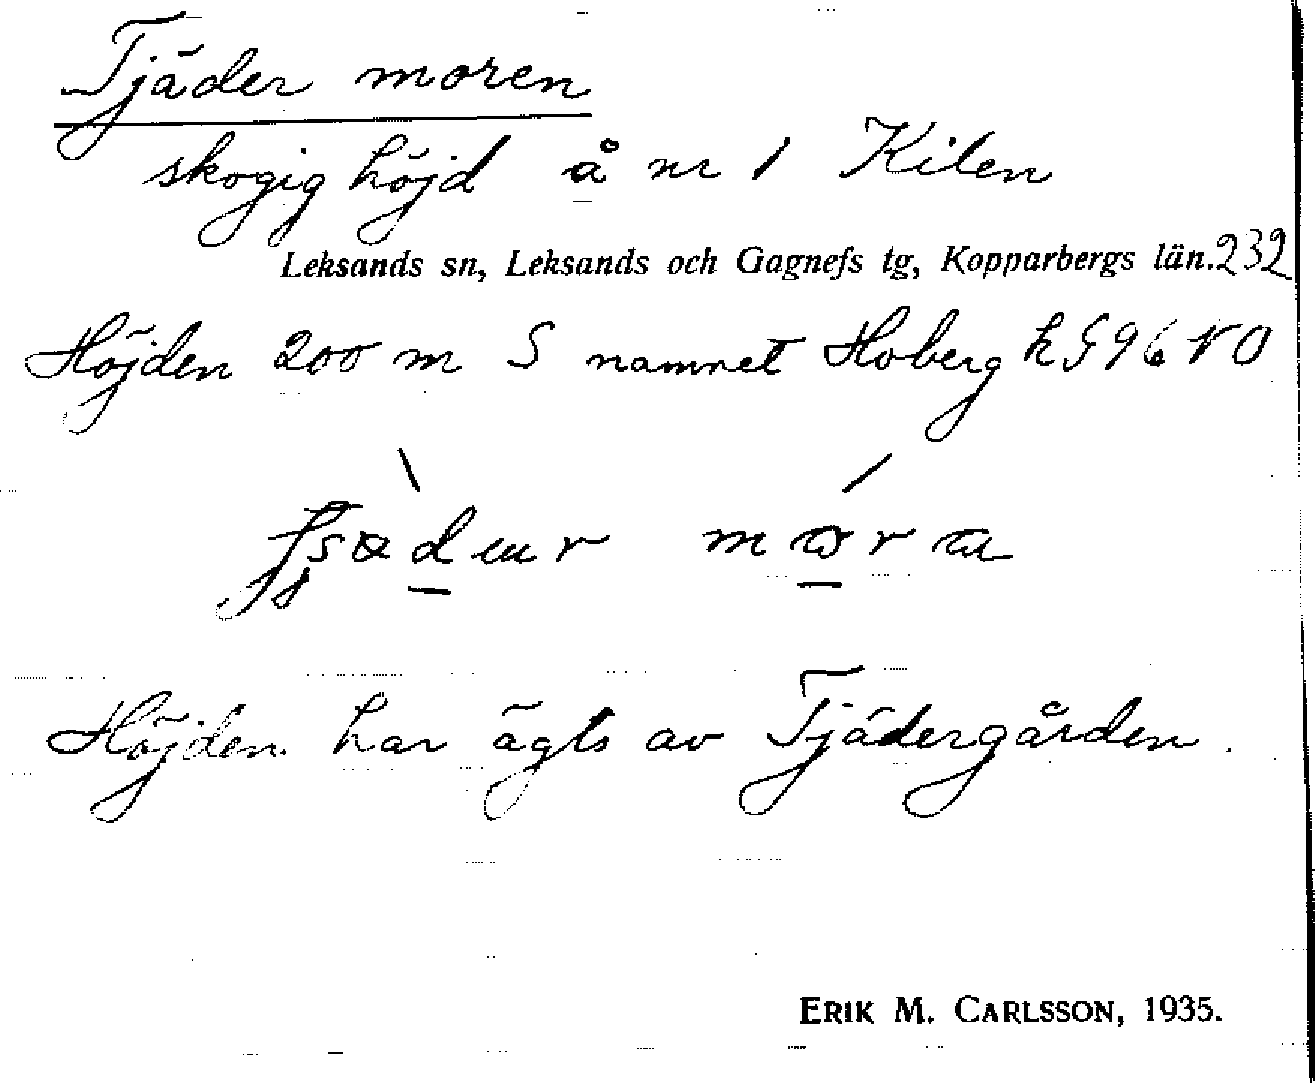 Tjäder moren
skogig höjd å nr 1 Kilen
Leksands sn, Leksands och Gagnefs tg, Kopparbergs län. 232
Höjden 200 m S namnet Hoberg k 596 NO
Höjden har ägts av Tjädergården.
ERIK M. CARLSSON, 1935.